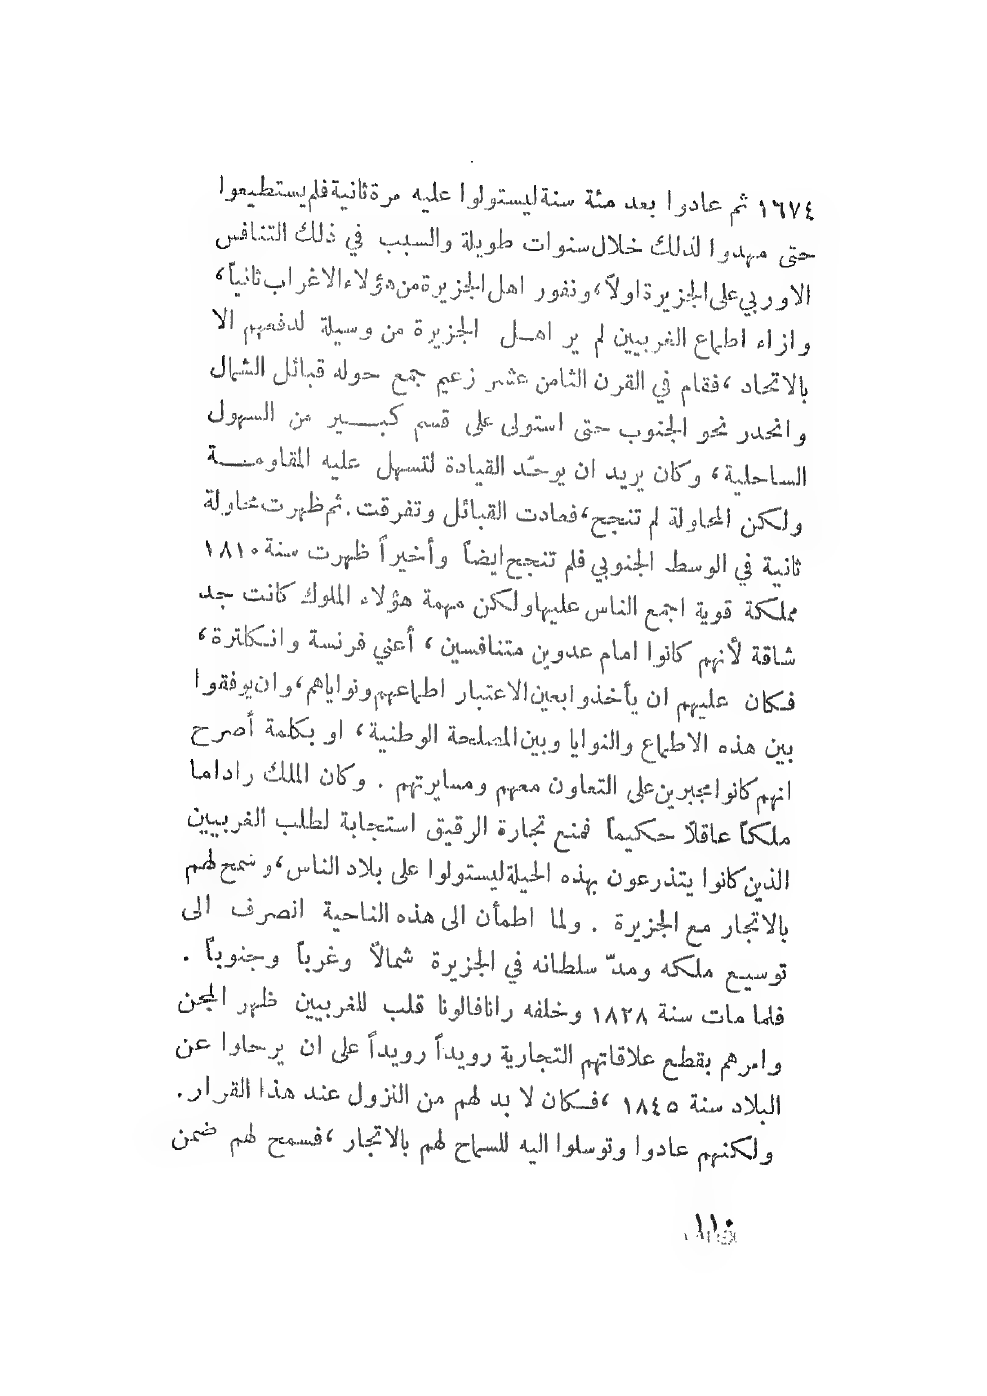 ١٦٧٤ ثم عادوا بعد مئة سنة ليستولوا عليه مرة ثانية فلم يستطيعوا
حتى مهدوا لذلك خلال سنوات طويلة والسبب في ذلك التنافس
الاوربي على الجزيرة اولاً، ونفور اهل الجزيرة من هؤلاء الاغراب ثانياً،
وازاء اطماع الغربيين لم ير اهـل الجزيرة من وسيلة لدفعهم الا
بالاتحاد، فقام في القرن الثامن عشر زعيم جمع حوله قبائل الشمال
وانحدر نحو الجنوب حتى استولى على قسم كبـــير من السهول
الساحلية، وكان يريد ان يوحّد القيادة لتسهل عليه المقاومـــة
ولكن المحاولة لم تنجح، فعادت القبائل وتفرقت. ثم ظهرت محاولة
ثانية في الوسط الجنوبي فلم تنجح ايضاً وأخيراً ظهرت سنة ١٨١٠
مملكة قوية اجمع الناس عليها ولكن مهمة هؤلاء الملوك كانت جد
شاقة لأنهم كانوا امام عدوين متنافسين، أعني فرنسة وانكلترة،
فكان عليهم ان يأخذوا بعين الاعتبار اطماعهم ونواياهم، وان يوفقوا
بين هذه الاطماع والنوايا وبين المصلحة الوطنية، او بكلمة أصرح
انهم كانوا مجبرين على التعاون معهم ومسايرتهم . وكان الملك راداما
ملكاً عاقلاً حكيماً فمنع تجارة الرقيق استجابة لطلب الغربيين
الذين كانوا يتذرعون بهذه الحيلة ليستولوا على بلاد الناس، وسمح لهم
بالاتجار مع الجزيرة . ولما اطمأن الى هذه الناحية انصرف الى
توسيع ملكه ومدّ سلطانه في الجزيرة شمالاً وغرباً وجنوباً .
فلما مات سنة ١٨٢٨ وخلفه رانافالونا قلب للغربيين ظهر المجن
وامرهم بقطع علاقاتهم التجارية رويداً رويداً على ان يرحلوا عن
البلاد سنة ١٨٤٥، فكان لا بد لهم من النزول عند هذا القرار.
ولكنهم عادوا وتوسلوا اليه للسماح لهم بالاتجار، فسمح لهم ضمن
١١٠